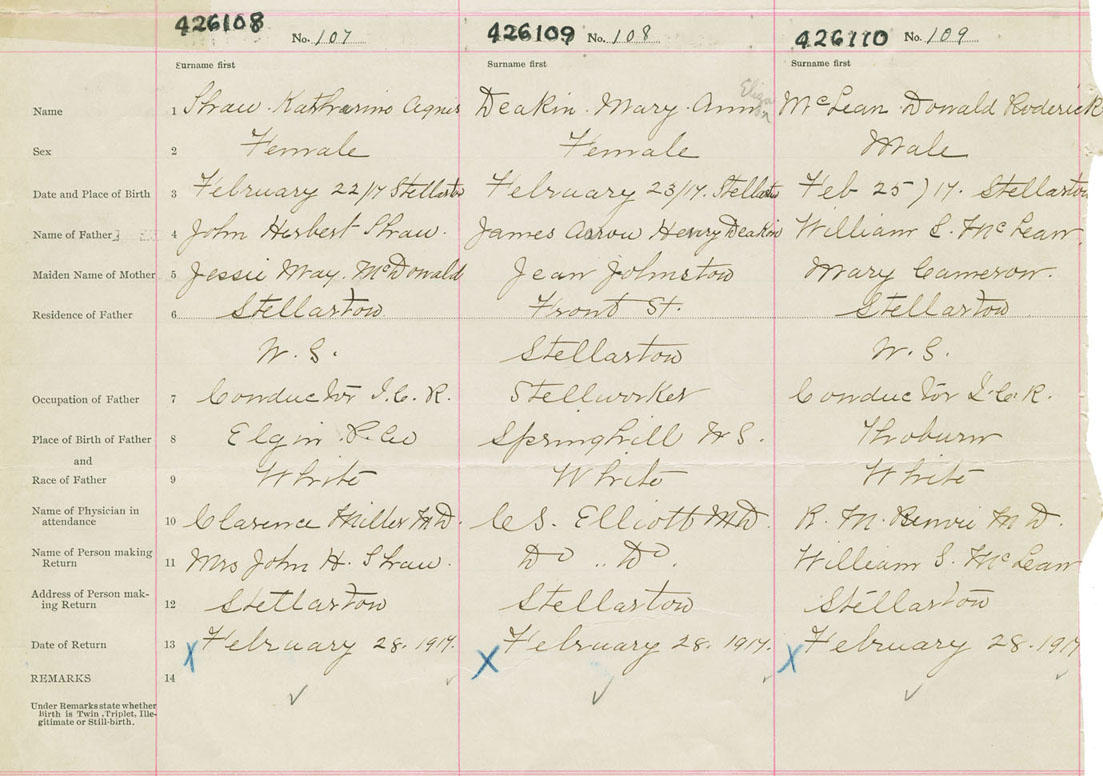 426108 No. 107 426109 No. 108 426110 No. 109
Surname first Surname first Surname first
Name 1 Shaw. Katharine Agnes Deakin. Mary Ann Eliza McLean Donald Roderick
Sex 2 Female Female Male
Date and Place of Birth 3 February 22/17 Stellarton February 23/17. Stellarton Feb 25/17. Stellarton
Name of Father 4 John Herbert Shaw. James Henry Deakin William S. McLean
Maiden Name of Mother 5 Jessie May. McDonald Jean Johnston Mary Cameron.
Residence of Father 6 Stellarton Front St. Stellarton
N. S. Stellarton N. S.
Occupation of Father 7 Conductor I. C. R. Steelworker Conductor I. C. R.
Place of Birth of Father 8 Elgin P. Co Springhill N S. Thorburn
and
Race of Father 9 White White White
Name of Physician in
attendance 10 Clarence Miller M D. C S. Elliott M D. R. M. M D.
Name of Person making
Return 11 Mrs John H. Shaw. Do .. Do. William S. McLean
Address of Person mak-
ing Return 12 Stellarton Stellarton Stellarton
Date of Return 13 X February 28. 1917. X February 28. 1917. X February 28. 1917
REMARKS 14
Under Remarks state whether
Birth is Twin, Triplet, Ille-
gitimate or Still-birth.